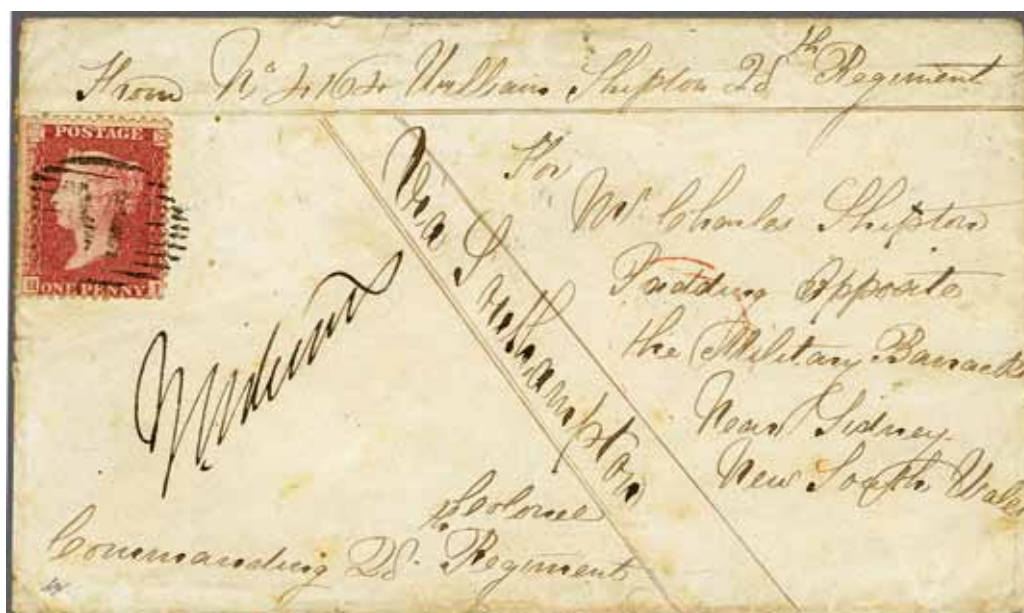 From No 4164 William Shipton 28th Regiment
POSTAGE
ONE PENNY
H I
Via Southampton
For
Mr Charles Shipton
Opposite
the Military Barracks
Near Sidney
New South Wales
Colonel
Commanding 28th Regiment